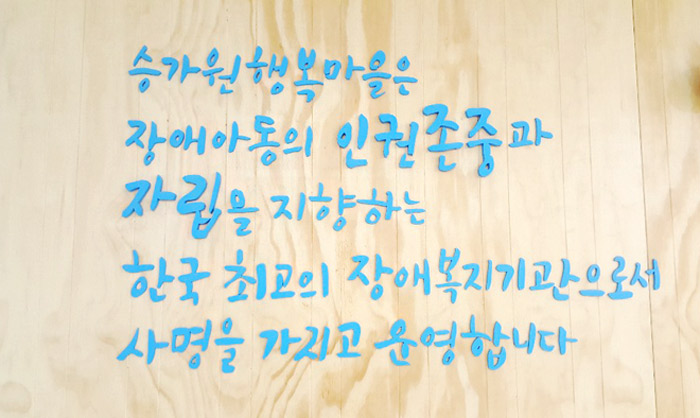 승가원행복마을은
장애아동의 인권존중과
자립을 지향하는
한국 최고의 장애복지기관으로서
사명을 가지고 운영합니다